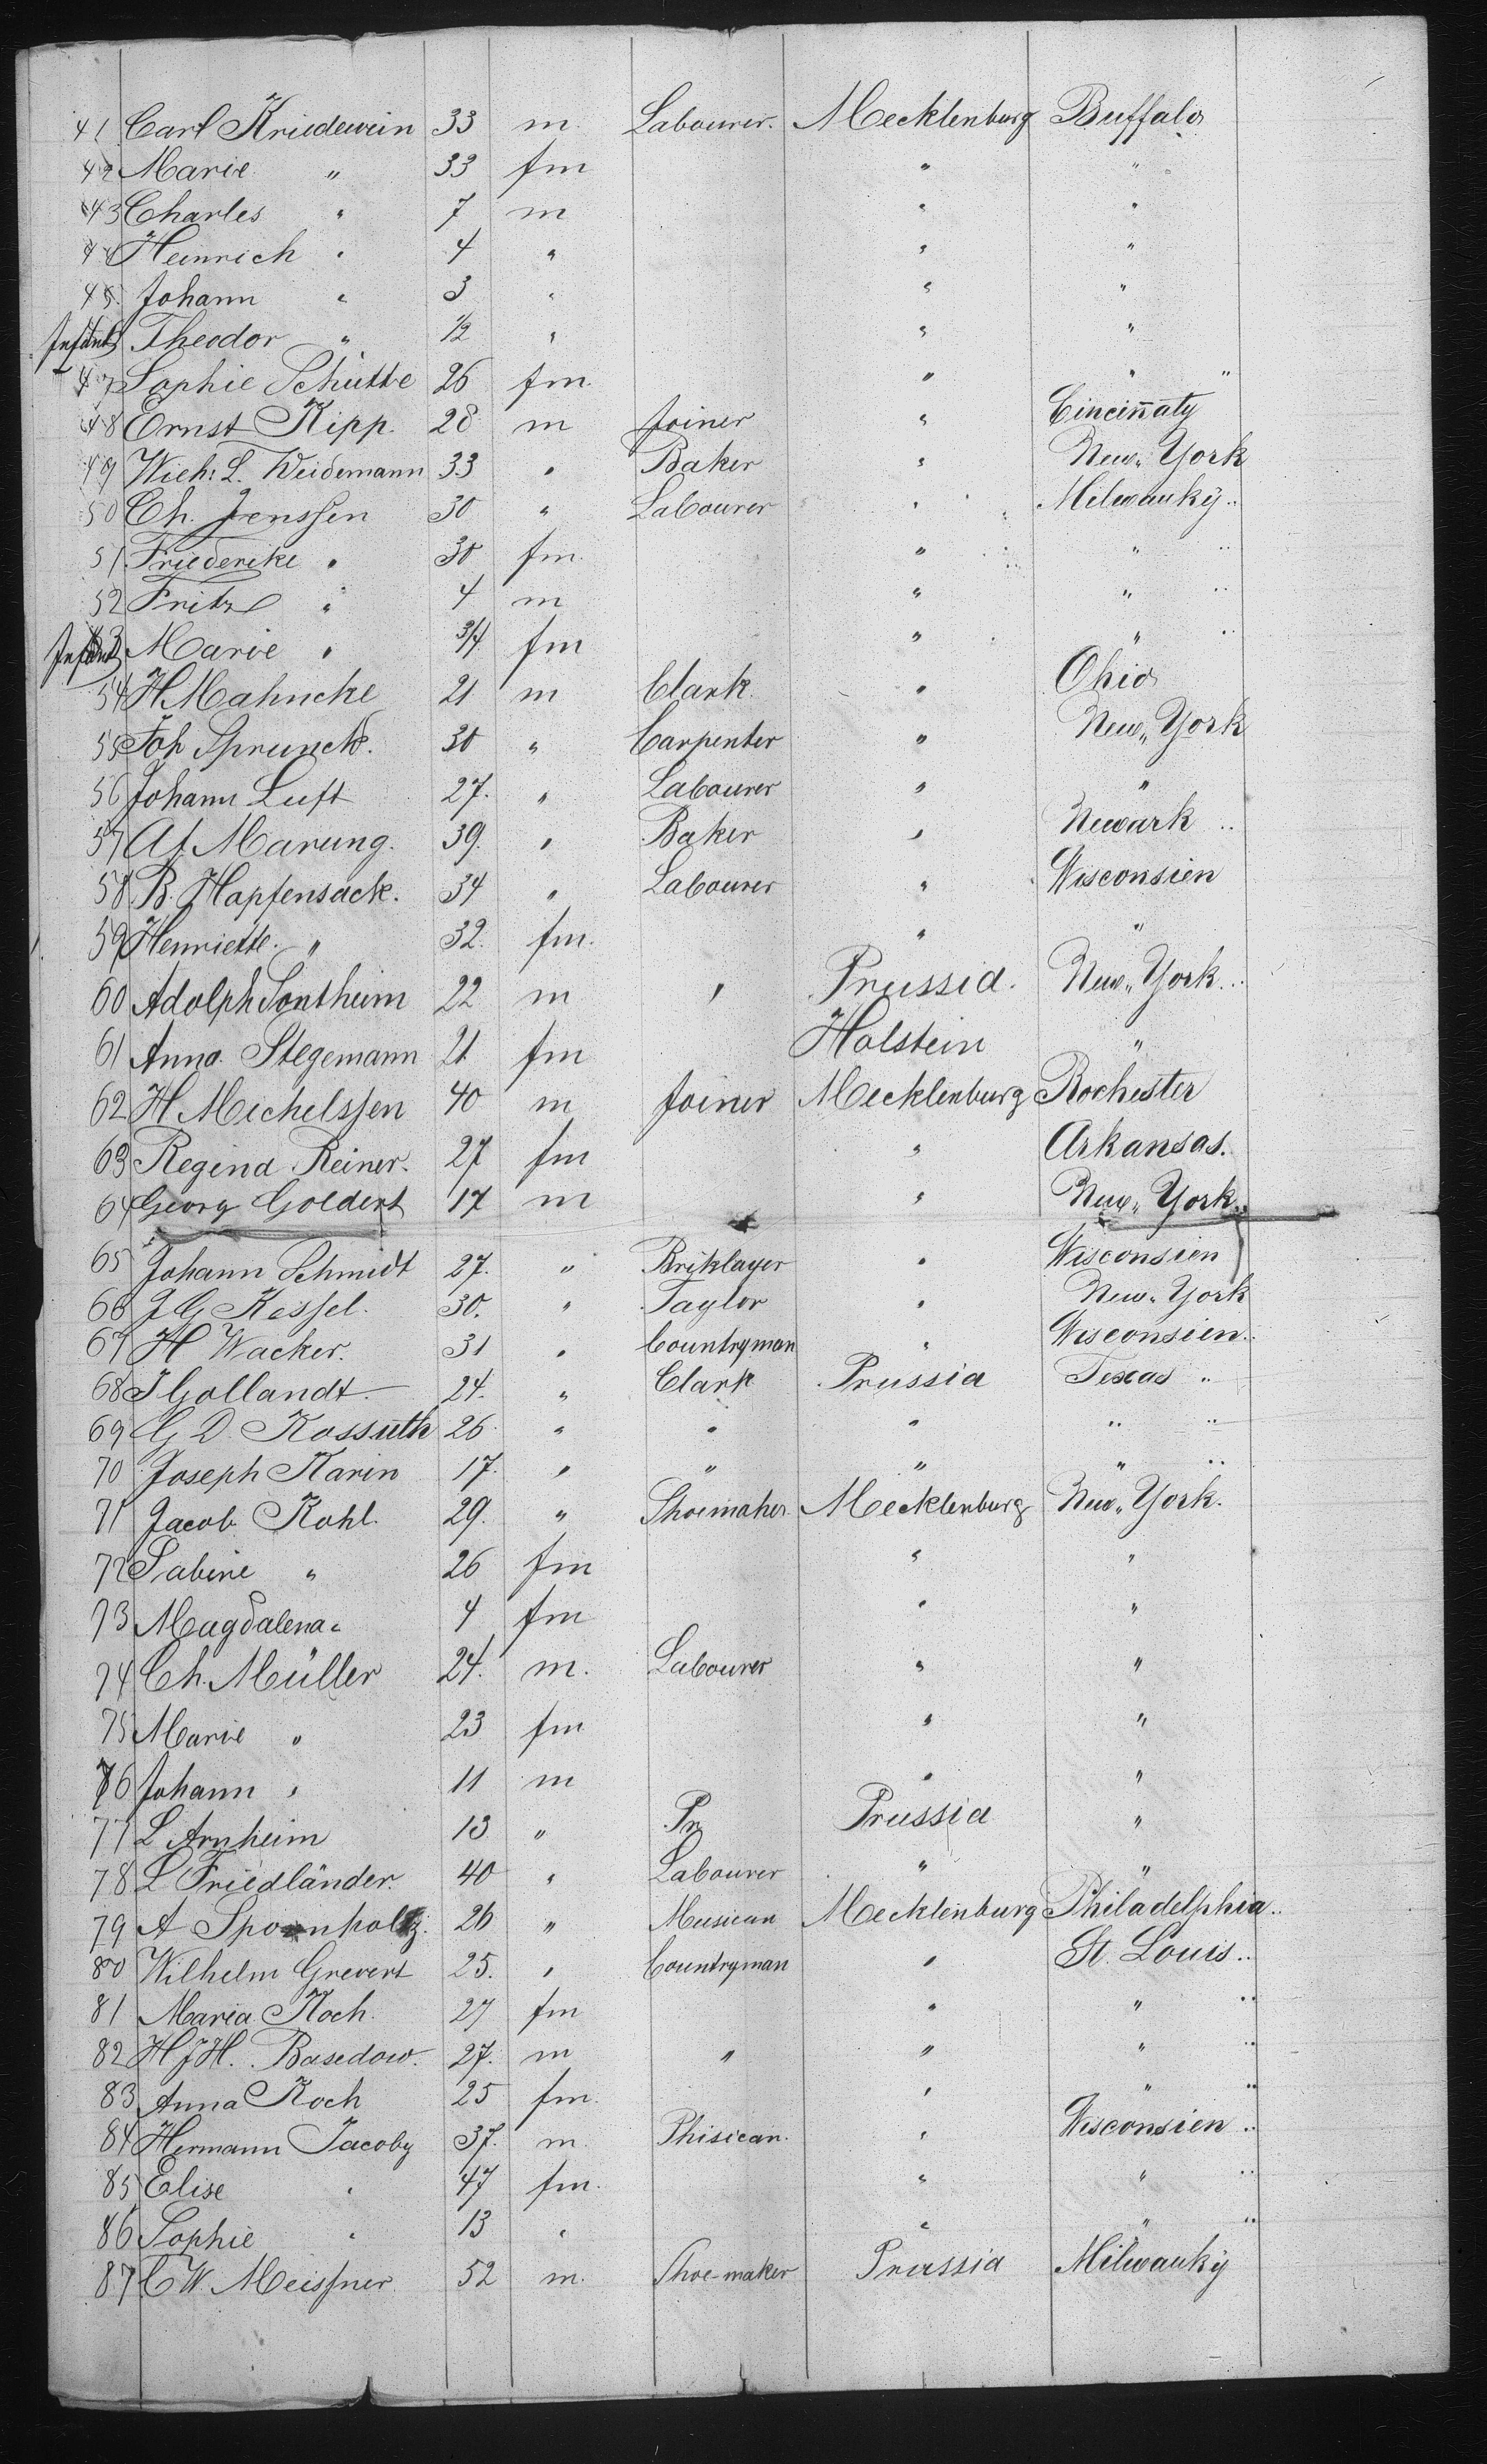 41 Carl Kriedewein 33 m. Labourer. Mecklenburg Buffalo
42 Marie " 33 fm " "
43 Charles " 7 m " "
44 Heinrich " 4 " " "
45. Johann " 3 " " "
Infant Theodor " 1/2 " " "
47 Sophie Schütte 26 fm. " " "
48 Ernst Kipp. 28 m Joiner " Cincinnaty
49 Wich: L. Weidemann 33 " Baker " New " York
50 Ch. Jenssen 30 " Labourer " Milwauky ..
51 Friederike " 30 fm. " " ..
52 Fritz " 4 m " " ..
Infant 53 Marie " 3/4 fm " " ..
54 H Mahncke 21 m Clark. " Ohio
55 Joh Sprunck. 30 " Carpenter " New " York
56 Johann Luft 27. " Labourer " "
57 At Marung. 39. " Baker " Newark ..
58 B. Hopfensack. 34 " Labourer " Wisconsien
59 Henriette. " 32. fm. " "
60 Adolph Sontheim 22 m " Prussia. New " York ..
61 Anna. Stegemann 21 fm Holstein "
62 H Michelssen 40 m Joiner Mecklenburg Rochester
63 Regina Reiner. 27 fm " Arkansas.
64 Georg Goldert 17 m " New " York ..
65 Johann Schmidt 27. " Briklayer " Wisconsien
66 J G Kessel. 30. " Taylor " New " York
67 H Wacker. 31 " Countryman " Wisconsien ..
68 J Gollandt 24. " Clark Prussia Texas ..
69 G D. Kossuth 26. " " " " ..
70 Joseph Karin 17. " " " " ..
71 Jacob Kohl. 29. " Shoemaker Mecklenburg New " York.
72 Sabine " 26 fm " "
73 Magdalena " 4 fm " "
74 Ch. Müller 24. m. Labourer " "
75 Marie " 23 fm " "
76 Johann " 11 m " "
77 L Arnheim 13 " Pr Prussia "
78 L Friedländer. 40 " Labourer " "
79 A Spornholtz. 26 " Musican Mecklenburg Philadelphia ..
80 Wilhelm Grevert 25. " Countryman " St. Louis ..
81 Maria Koch. 27 fm " " ..
82 H J H. Basedow. 27. m " " " ..
83 Anna Koch 25 fm. " " ..
84 Hermann Jacoby 37. m. Phisican. " Wisconsien ..
85 Elise " 47 fm. " " ..
86 Sophie " 13 " " " ..
87 C W. Meissner 52 m. Shoe-maker Prussia Milwauky